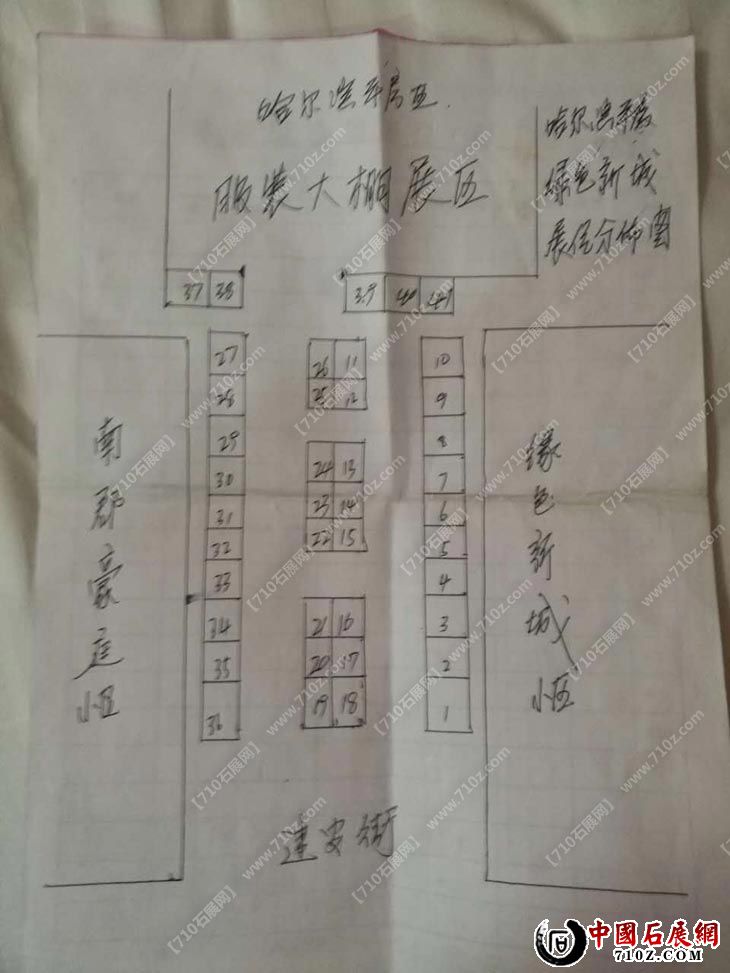 哈尔滨平房区
服装大棚展区
哈尔滨平房
绿色新城
展位分佈图
37 38
39 40 41
27
28
29
30
31
32
33
34
35
36
26 11
25 12
24 13
23 14
22 15
21 16
20 17
19 18
10
9
8
7
6
5
4
3
2
1
南郡豪庭小区
绿色新城小区
建安街
【710石展网】www.710z.com
中國石展網
710Z.COM